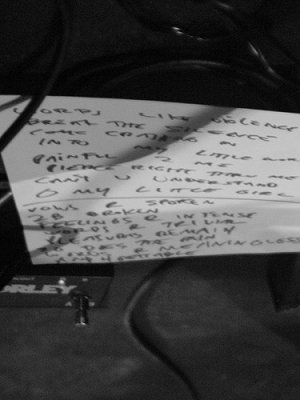 WORDS LIKE VIOLENCE
BREAK THE SILENCE
COME CRASHING IN
INTO MY LITTLE WORLD
PAINFUL 2 ME
PIERCE RIGHT THRU ME
CANT U UNDERSTAND
O MY LITTLE GIRL
VOWS R SPOKEN
2 B BROKEN
FEELINGS R INTENSE
WORDS R TRIVIAL
PLEASURES REMAIN
SO DOES THE PAIN
WORDS R MEANINGLESS
FORGETTABLE
ORLEY